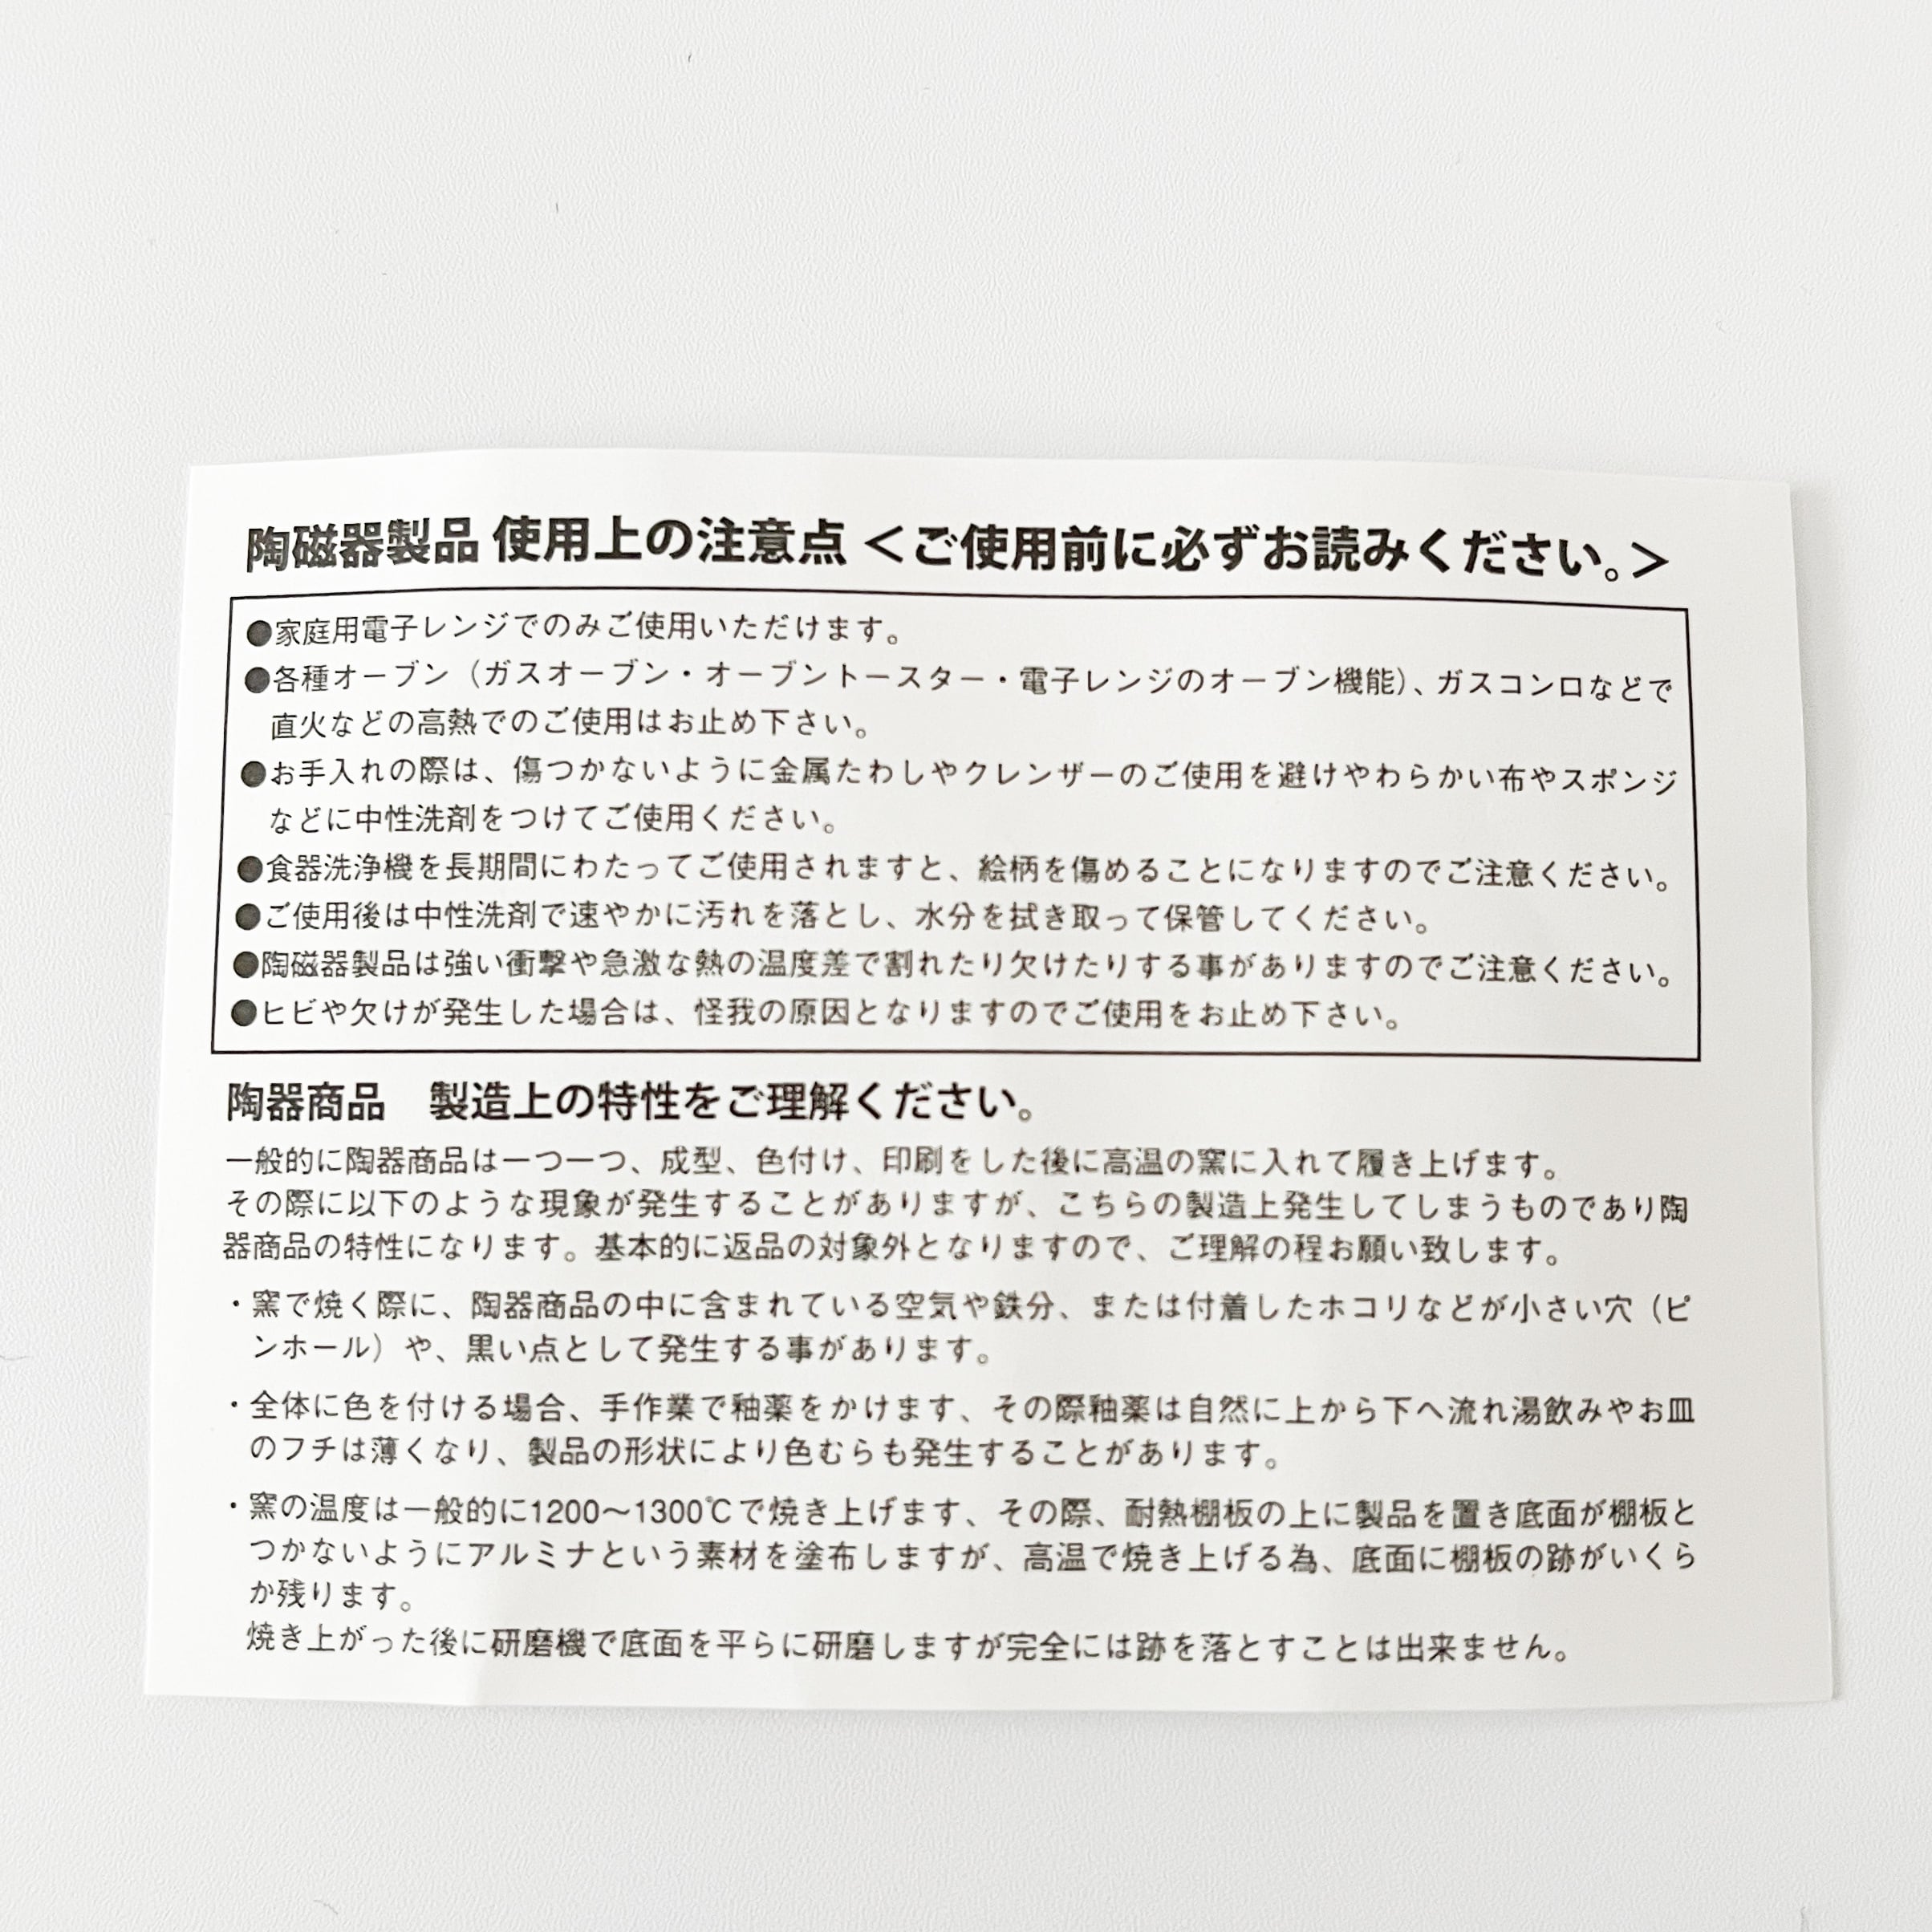 陶磁器製品 使用上の注意点 ＜ご使用前に必ずお読みください。＞
●家庭用電子レンジでのみご使用いただけます。
●各種オーブン（ガスオーブン・オーブントースター・電子レンジのオーブン機能）、ガスコンロなどで
直火などの高熱でのご使用はお止め下さい。
●お手入れの際は、傷つかないように金属たわしやクレンザーのご使用を避けやわらかい布やスポンジ
などに中性洗剤をつけてご使用ください。
●食器洗浄機を長期間にわたってご使用されますと、絵柄を傷めることになりますのでご注意ください。
●ご使用後は中性洗剤で速やかに汚れを落とし、水分を拭き取って保管してください。
●陶磁器製品は強い衝撃や急激な熱の温度差で割れたり欠けたりする事がありますのでご注意ください。
●ヒビや欠けが発生した場合は、怪我の原因となりますのでご使用をお止め下さい。
陶器商品　製造上の特性をご理解ください。
一般的に陶器商品は一つ一つ、成型、色付け、印刷をした後に高温の窯に入れて履き上げます。
その際に以下のような現象が発生することがありますが、こちらの製造上発生してしまうものであり陶
器商品の特性になります。基本的に返品の対象外となりますので、ご理解の程お願い致します。
・窯で焼く際に、陶器商品の中に含まれている空気や鉄分、または付着したホコリなどが小さい穴（ピ
ンホール）や、黒い点として発生する事があります。
・全体に色を付ける場合、手作業で釉薬をかけます、その際釉薬は自然に上から下へ流れ湯飲みやお皿
のフチは薄くなり、製品の形状により色むらも発生することがあります。
・窯の温度は一般的に1200〜1300℃で焼き上げます、その際、耐熱棚板の上に製品を置き底面が棚板と
つかないようにアルミナという素材を塗布しますが、高温で焼き上げる為、底面に棚板の跡がいくら
か残ります。
焼き上がった後に研磨機で底面を平らに研磨しますが完全には跡を落とすことは出来ません。